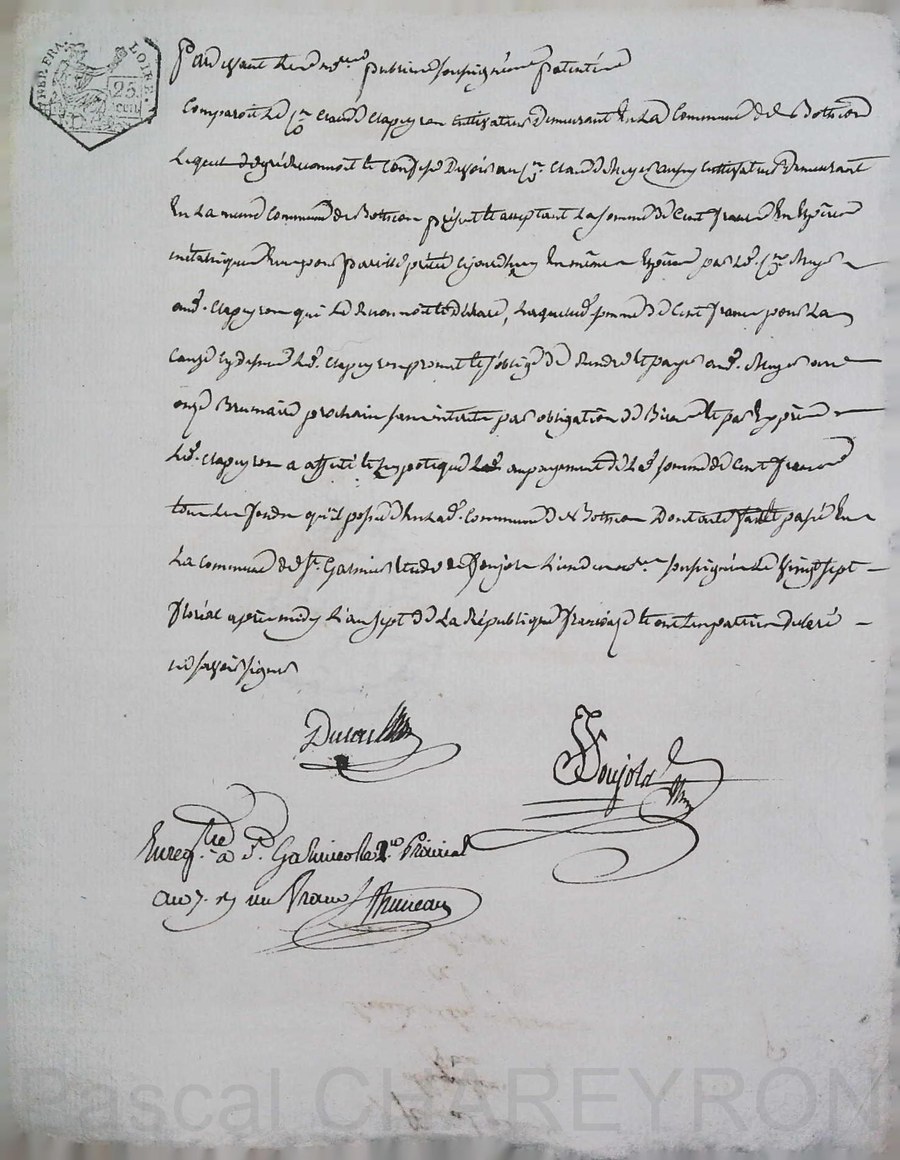 REP. FRA.
LOIRE.
25. cen.
Pardevant les no.res publics soussignés patentés
Comparoit le C.en Claude Clapeyron Cultivateur demeurant En La Commune de Bothéon
Lequel de gré reconnoit et Confesse Devoir au C.en Claude Muyer aussy Cultivateur demeurant
En La meme Commune de Bothéon présent et acceptant La somme de Cent francs En Espèces
metalliques Reçu pour pareille prêtée cejourdhuy En mêmes Espèces par Led. C.en Muyer
aud. Clapeyron qui Le Reconnoit et déclare, Laquelle somme de Cent francs pour La
Cause cydessus Led. Clapeyron promet et s'oblige de Rendre et payer aud. Muyer au
onze Brumaire prochain sans interets par obligation de Biens et par Exprès
Led. Clapeyron a affecté et hypotéqué au payement de Lad. somme de Cent francs
tous les fonds qu'il possede En Lad. Commune de Bothéon Dont acte fait et passé En
La commune de St. Galmier Etude de Ponjola L'un des no.res soussignés Le Vingt sept
floréal après midy L'an sept de La République française et ont Les parties déclaré
ne savoir signer
Ponjola
Enreg.tré à St. Galmier le 1.er Prairial
an 7. R. un franc
Pascal CHAREYRON